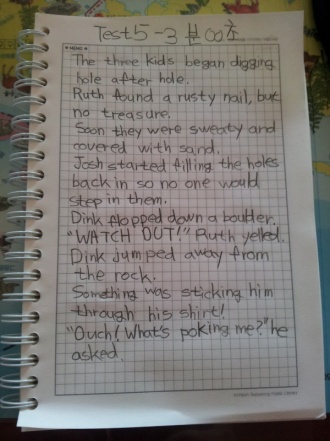 Test 5-3 분∞초
MEMO
The three kids began digging
hole after hole.
Ruth found a rusty nail, but
no treasure.
Soon they were sweaty and
covered with sand.
Josh started filling the holes
back in so no one would
step in them.
Dink flopped down a boulder.
"WATCH OUT!" Ruth yelled.
Dink Jumped away from
the rock.
Something was sticking him
through his shirt!
"Ouch! What's poking me?" he
asked.